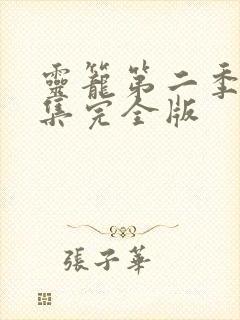 靈籠第二季
集完全版
張子華